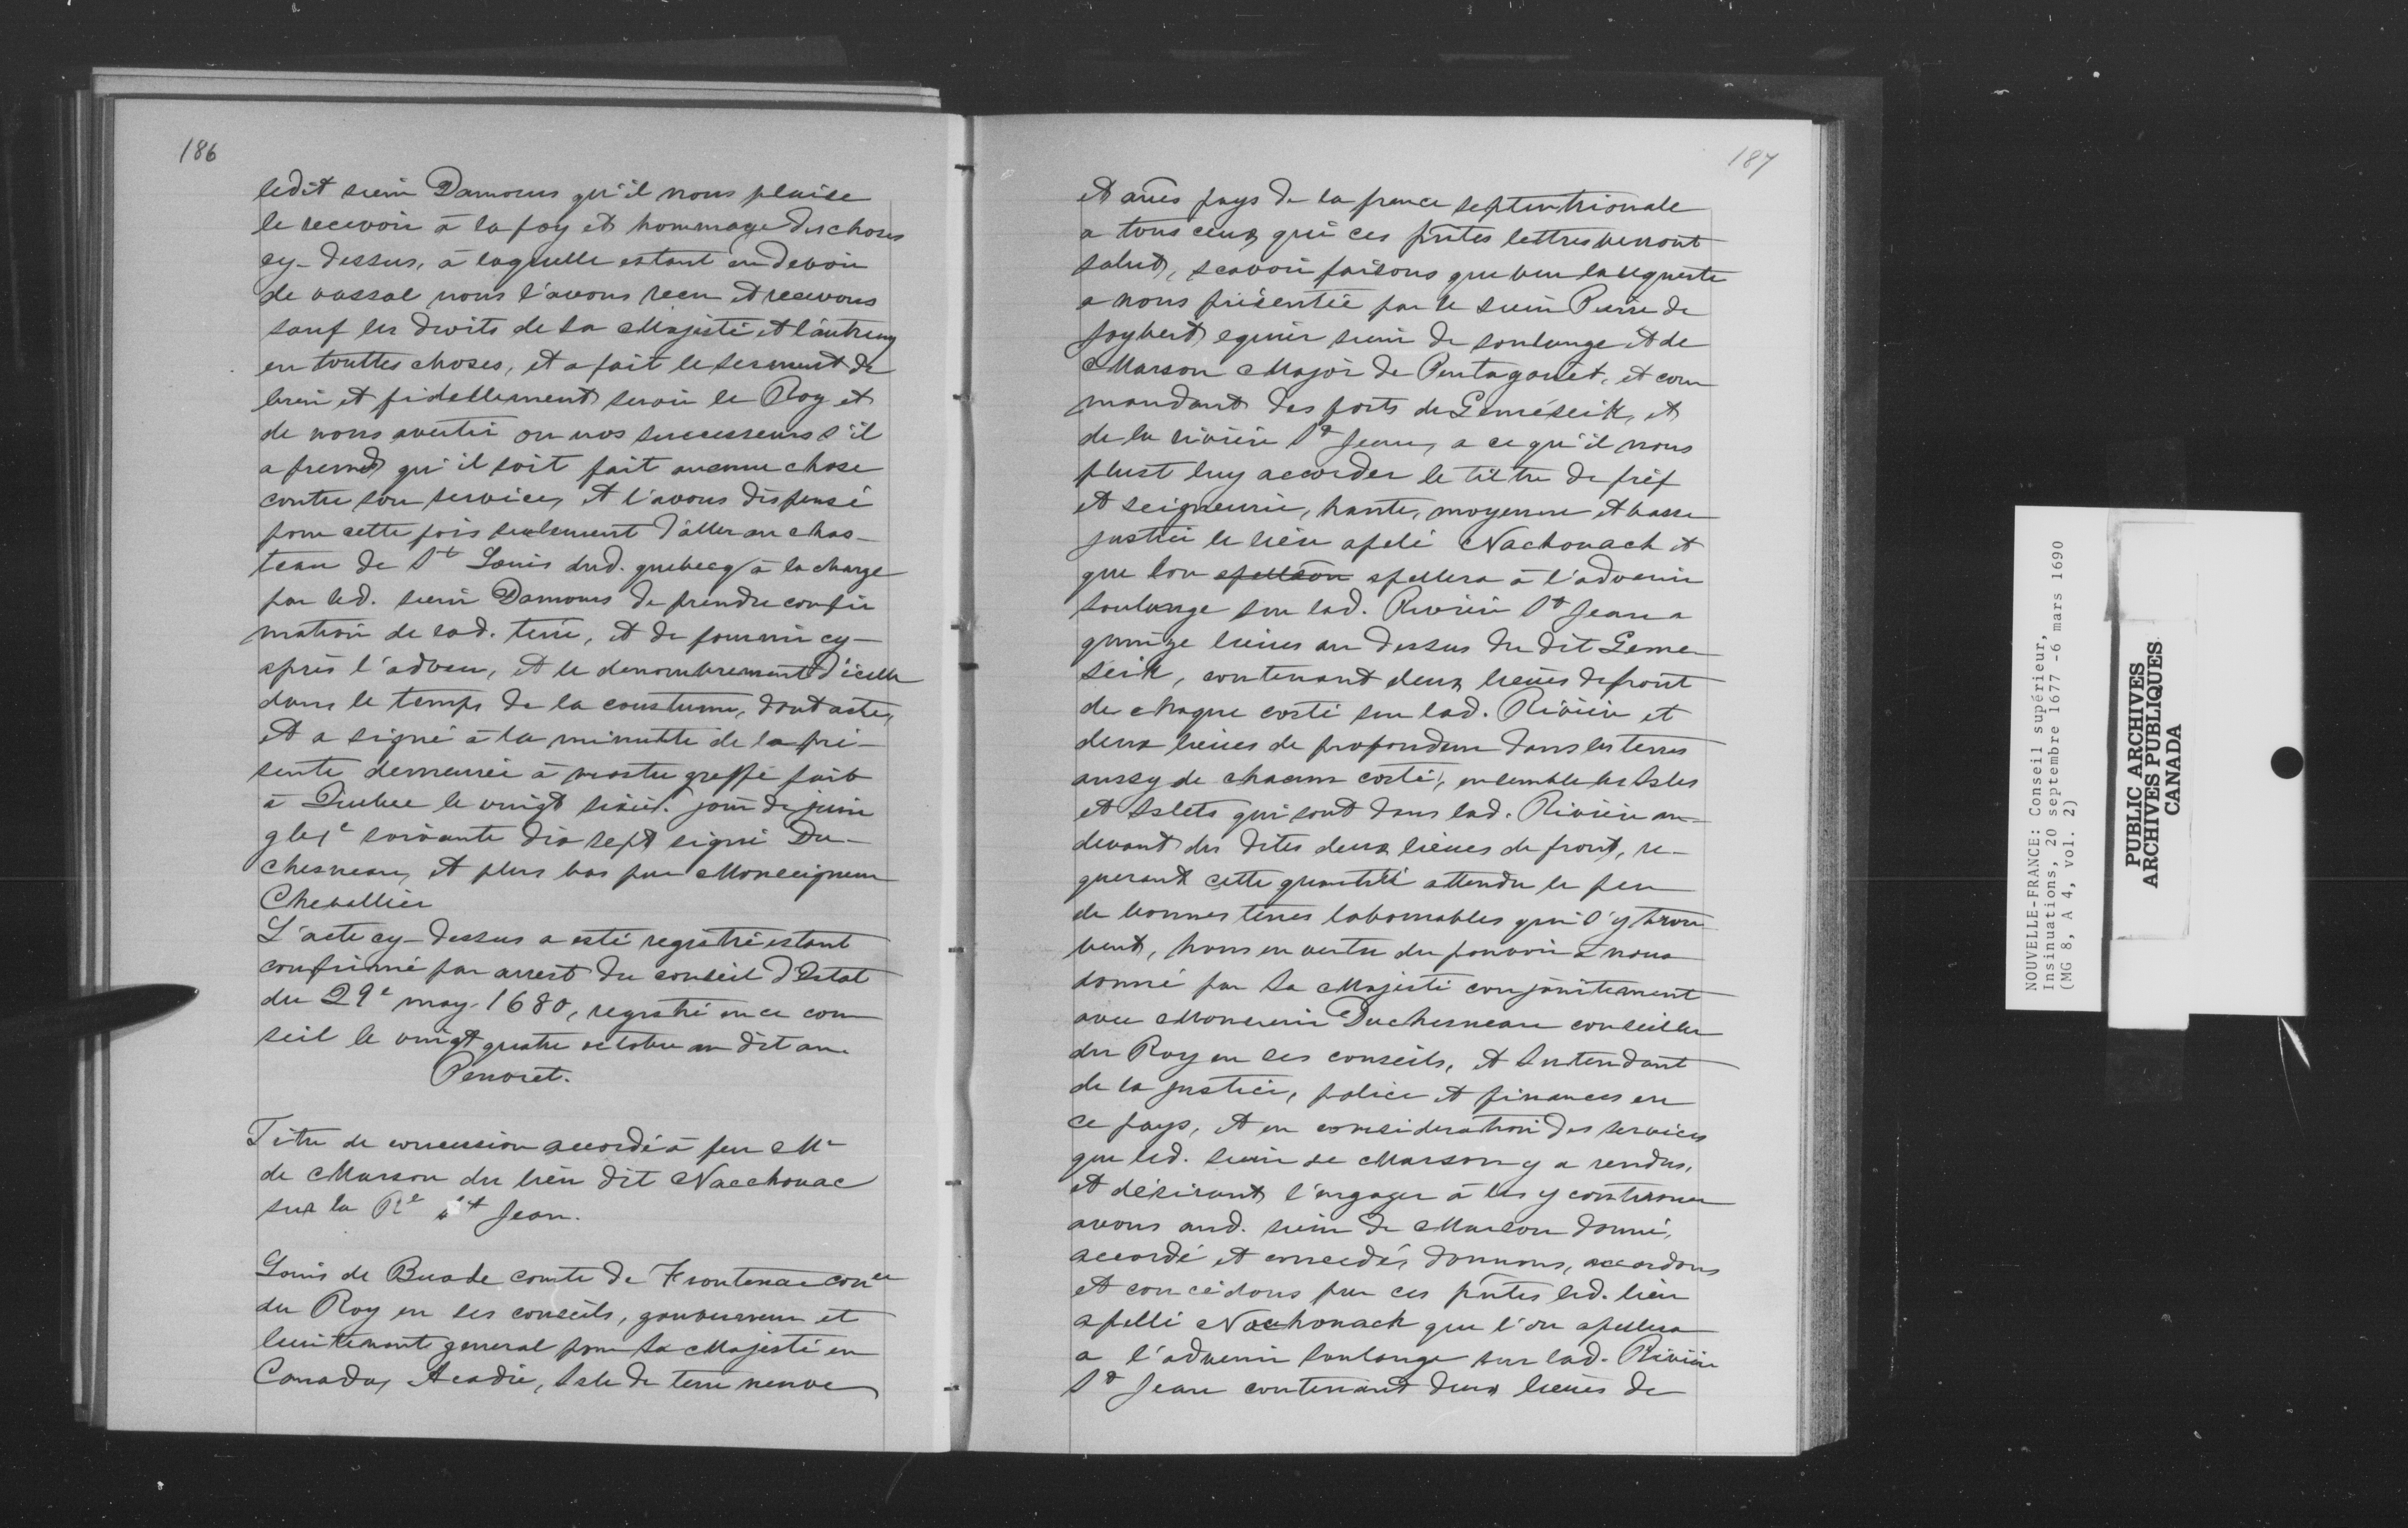 186
ledit sieur Damours qu'il nous plaise
le recevoir à la foy et hommage des choses
cy-dessus, à laquelle estant en devoir
de vassal nous l'avons receu et recevons
sauf les droits de Sa Majesté et l'autruy
en touttes choses, et a fait le serment de
bien et fidellement servir le Roy et
de nous avertir ou nos successeurs s'il
aprend qu'il soit fait aucune chose
contre son service, et l'avons dispensé
pour cette fois seulement d'aller au chas-
teau de St Louis dud. quebecq à la charge
par led. sieur Damours de prendre confir
mation de lad. terre, et de fournir cy-
après l'adveu, et le denombrement d'icelle
dans le temps de la coustume, dont acte,
et a signé à la minutte de la pré-
sente demeurée à nostre greffe fait
à Quebec le vingt sixie. jour de juin
gbje soixante dix sept signé Du-
chesneau, et plus bas par Monseigneur
Chevallier
L'acte cy-dessus a esté registré estant
confirmé par arrest du conseil d'Estat
du 29e may 1680, registré en ce con
seil le vingt quatre octobre au dit an.
Penoret.
Titre de concession accordé à feu Mr
de Marson du lieu dit Nacchouac
sur la Re St Jean.
Louis de Buade comte de Frontenac coner
du Roy en ses conseils, gouverneur et
lieutenant general pour Sa Majesté en
Canada, Acadie, Isle de terre neuve
187
et aues pays de la france septentrionale
a tous ceux qui ces pntes lettres verront
salut, scavoir faisons que veu la requeste
a nous présentée par le sieur Pierre de
Joybert equier sieur de soulange et de
Marson Major de Pentagouet, et com
mandant des forts de Gemeseik, et
de la riviere St Jean, a ce qu'il nous
plust luy accorder le tiltre de fief
et seigneurie, haute, moyenne et basse
justice le lieu apelé Nachouach et
que lon apelleon apellera à l'advenir
soulange sur lad. Riviere St Jean a
quinze lieues au dessus du dit Geme
seik, contenant deux lieues de front
de chaque costé sur lad. Riviere et
deux lieues de profondeur dans les terres
aussy de chacun costé, ensemble les Isles
et Islets qui sont dans lad. Riviere au-
devant des dites deux lieues de front, re-
querant cette quantité attendu le peu
de bonnes terres labourables qui s'y trou
vent, Nous en vertu du pouvoir à nous
donné par Sa Majesté conjointement
avec Monsieur Duchesneau conseiller
du Roy en ses conseils, et Intendant
de la justice, police et finances en
ce pays, et en consideration des services
que led. sieur de Marson y a rendus,
et désirant l'engager à les y continuer
avons aud. sieur de Marson donné,
accordé et concedé, donnons, accordons
et concédons par ces pntes led. lieu
apellé Nachouach que l'on apellera
a l'advenir Soulange sur lad. Riviere
St Jean contenant deux lieues de
NOUVELLE-FRANCE: Conseil supérieur,
Insinuations, 20 septembre 1677 -6 mars 1690
(MG 8, A 4, vol. 2)
PUBLIC ARCHIVES
ARCHIVES PUBLIQUES
CANADA